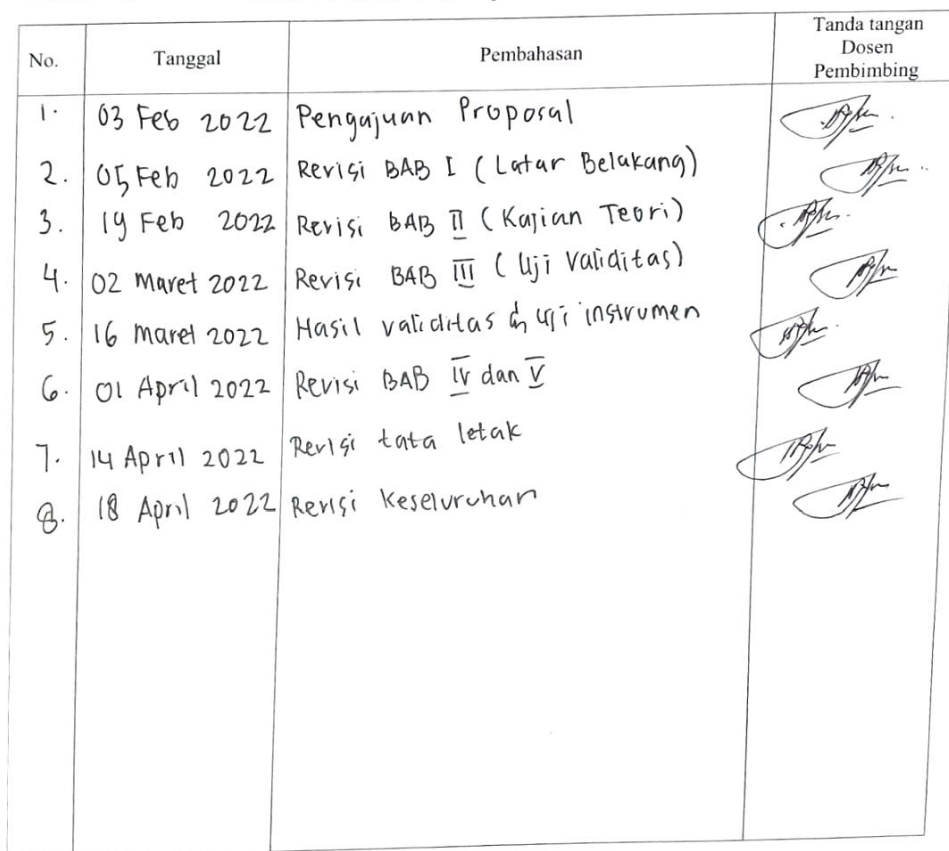 No. Tanggal Pembahasan Tanda tangan
Dosen
Pembimbing
1. 03 Feb 2022 Pengajuan Proposal
2. 05 Feb 2022 Revisi BAB I (Latar Belakang)
3. 19 Feb 2022 Revisi BAB II (Kajian Teori)
4. 02 Maret 2022 Revisi BAB III (Uji Validitas)
5. 16 Maret 2022 Hasil validitas & uji instrumen
6. 01 April 2022 Revisi BAB IV dan V
7. 14 April 2022 Revisi tata letak
8. 18 April 2022 Revisi Keseluruhan